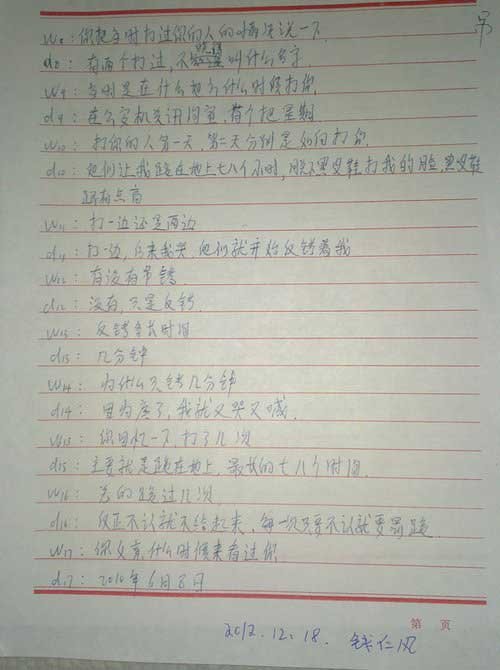 吊
W8:你把当时打过你的人的情况说一下
d8:有两个打过,不晓得叫什么名字
W9:当时是在什么地方什么时候打你
d9:在公安机关讯问室,有个把星期
W10:打你的人第一天、第二天分别是如何打你
d10:他们让我跪在地上七八个小时,用黑皮鞋打我的脸,黑皮鞋
还有点高
W11:打一边还是两边
d11:打一边,后来我哭,他们就开始反铐着我
W12:有没有吊铐
d12:没有,只是反铐
W13:反铐多长时间
d13:几分钟
W14:为什么只铐几分钟
d14:因为疼了,我就又哭又喊
W15:你回忆一下,打了几次
d15:主要就是跪在地上,最长的七八个时间
W16:总的跪过几次
d16:反正不认就不给起来,每一次只要不认就要罚跪
W17:你父亲什么时候来看过你
d17:2010年6月8日
第 页
2012.12.18. 钱仁风